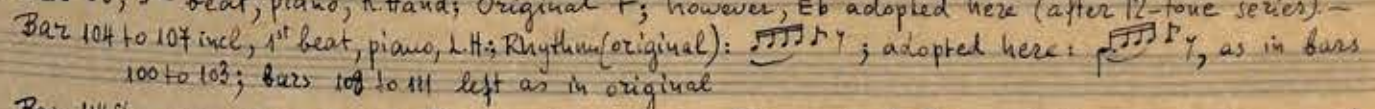 beat, piano, R.Hand; Original F; however, Eb adopted here (after 12-tone series).—
Bar 104 to 107 incl, 1st beat, piano, L.H.; Rhythm (original): ; adopted here: , as in bars
100 to 103; bars 108 to 111 left as in original
Bar